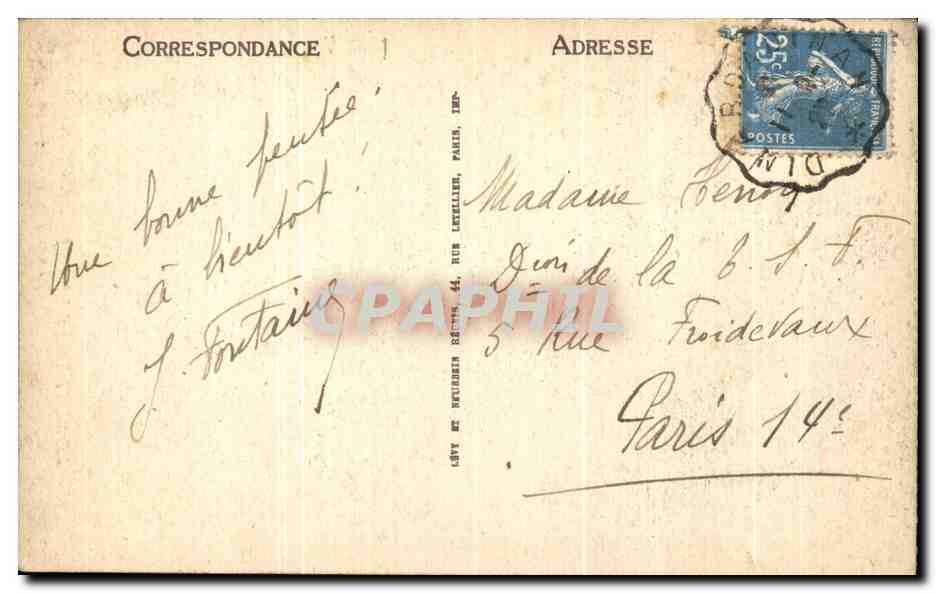 CORRESPONDANCE
ADRESSE
25c
REPUBLIQUE FRANCAISE
POSTES
Une bonne pensée!
à bientôt!
J. Fontaine
LÉVY ET NEURDEIN RÉUNIS, 44, RUE LETELLIER, PARIS, IMP.
Madame Henon
Dion de la 6 S. F.
5 Rue Froidevaux
Paris 14e
CPAPHIL